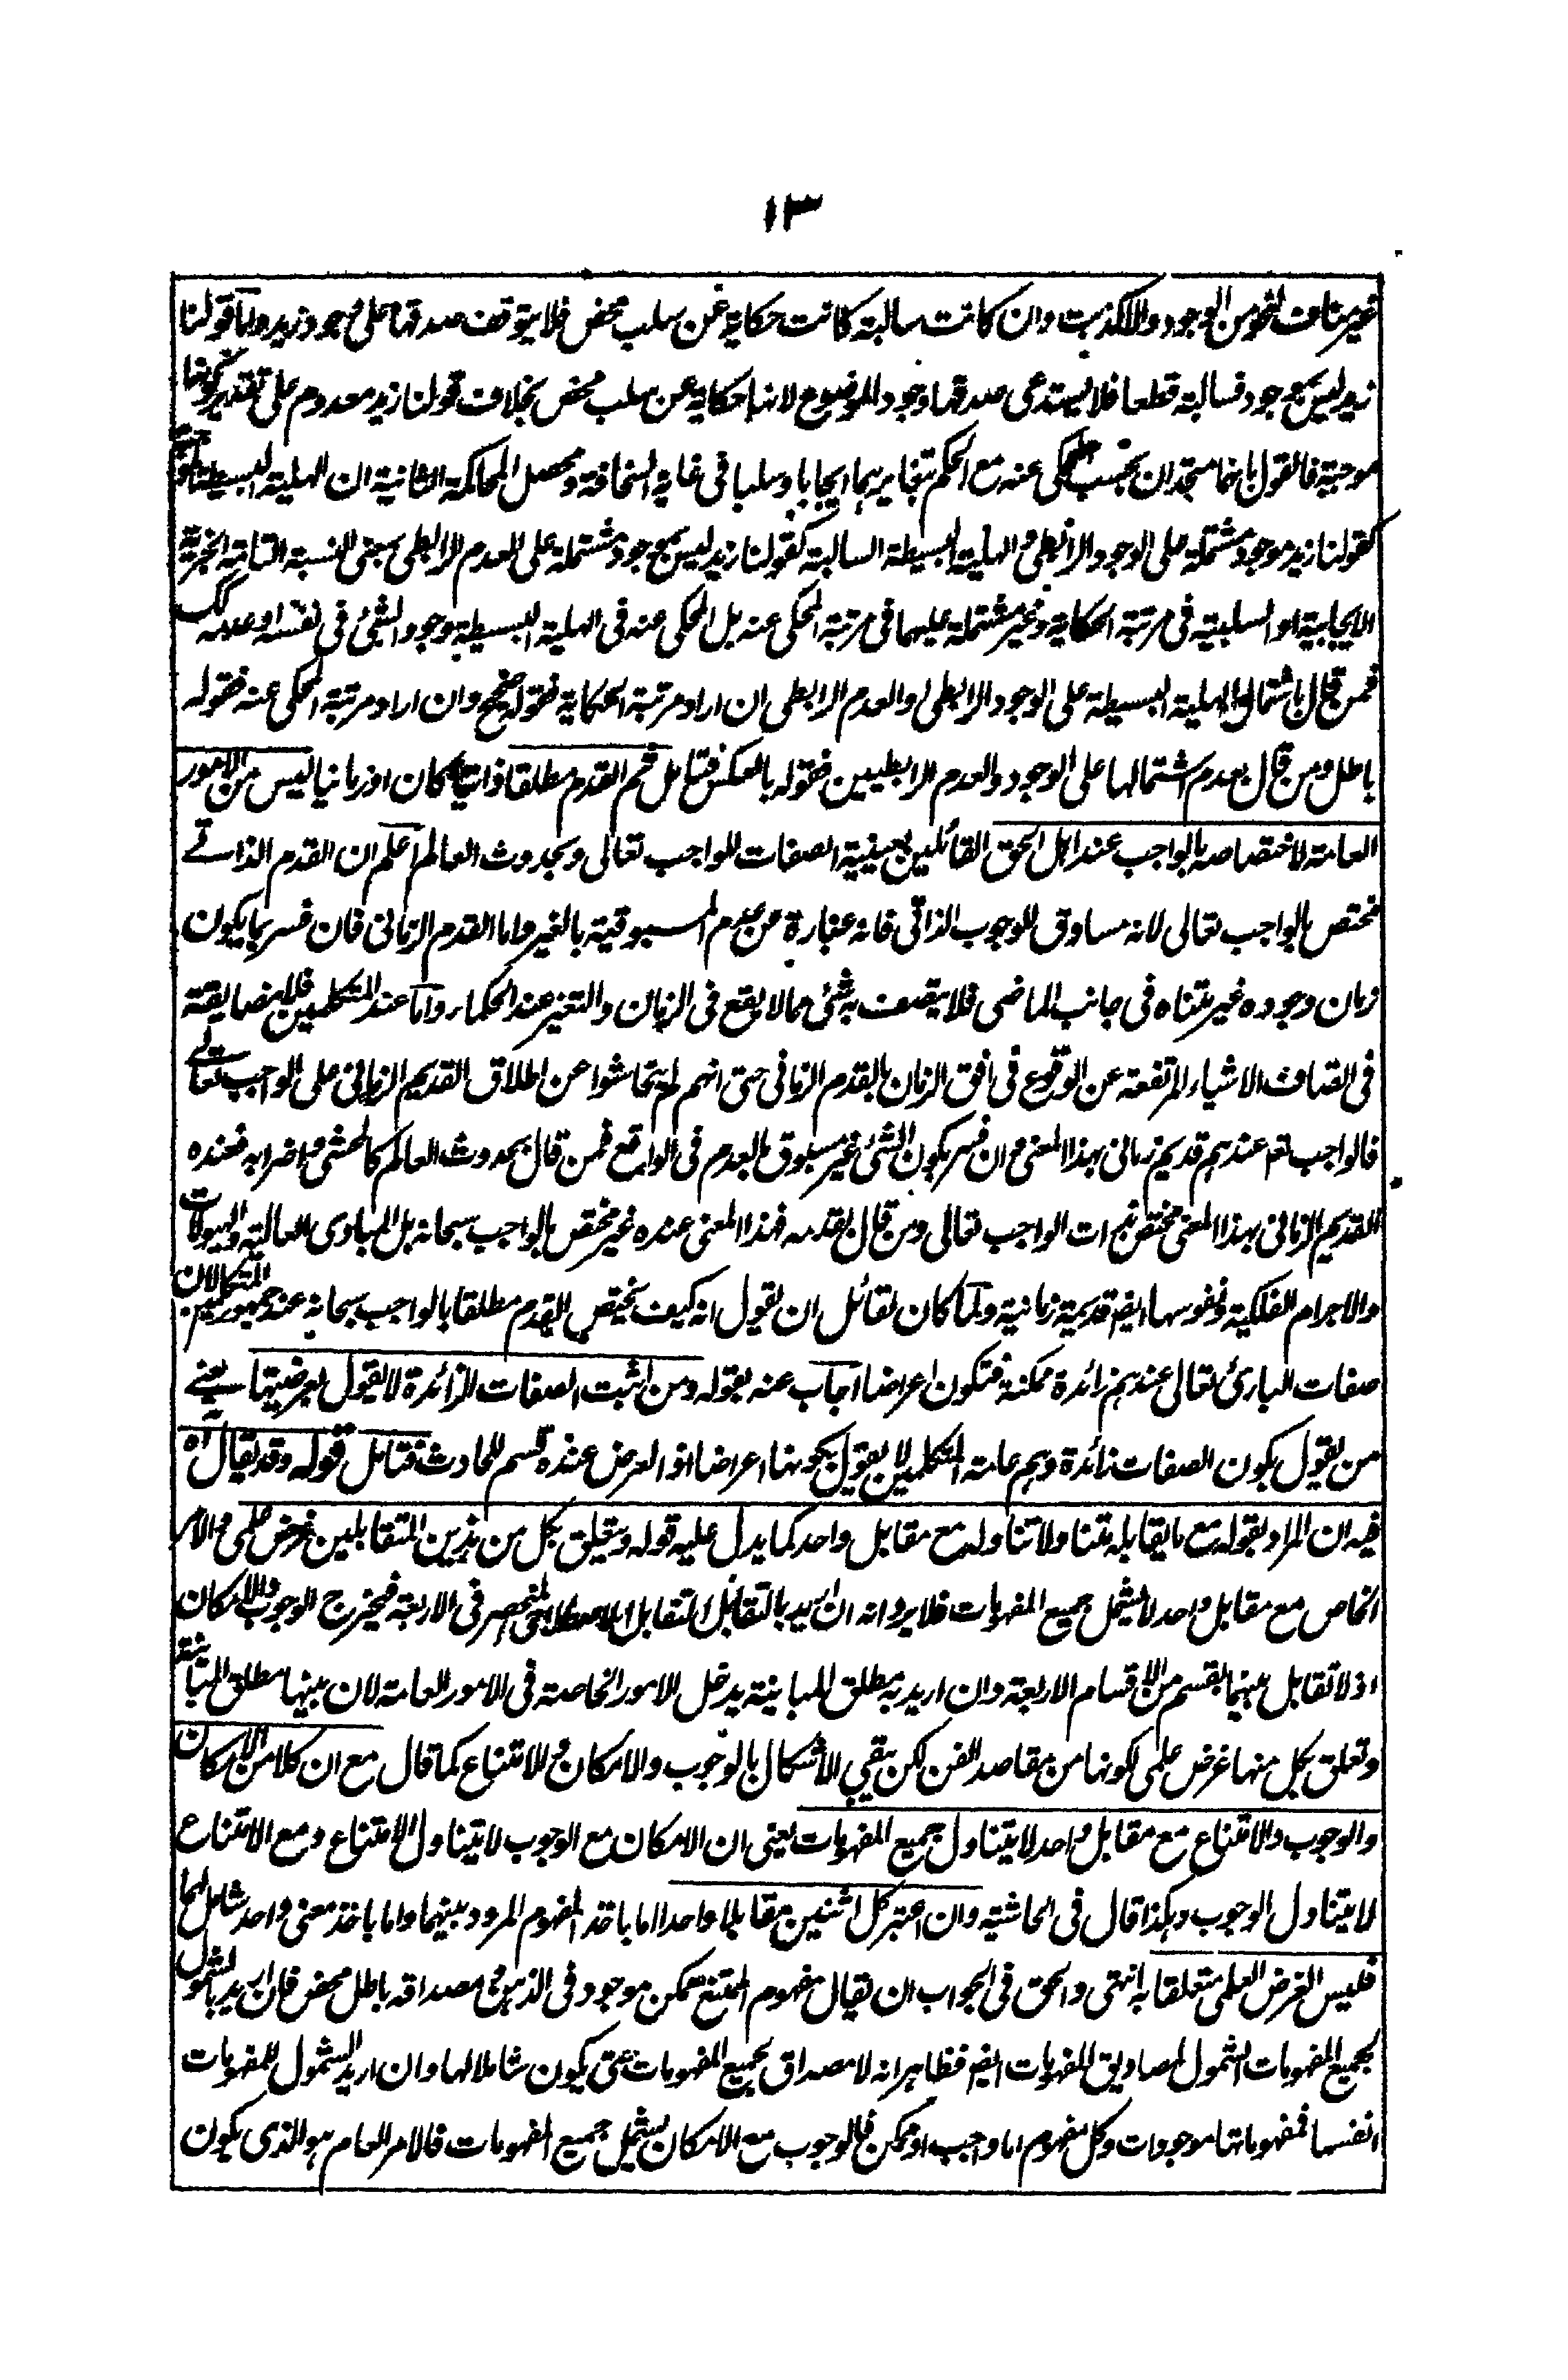 ١٣
غير مناف لنحو من الوجود والا لكذبت وان كانت سالبة كانت حكاية عن سلب محض فلا يتوقف صدقها على وجود زيد واما قولنا
زيد ليس بموجود فسالبة قطعا فلا يستدعى صدقها وجود الموضوع لانها حكاية عن سلب محض بخلاف قولنا زيد معدوم على تقدير كونها
موجبة فالقول بانهما متحدان بحسب المحكى عنه مع الحكم بتغايرهما ايجابا وسلبا فى غاية السخافة ومحصل المحاكمة الثانية ان الهلية البسيطة الموجبة
كقولنا زيد موجود مشتملة على الوجود الرابطى والهلية البسيطة السالبة كقولنا زيد ليس بموجود مشتملة على العدم الرابطى بمعنى النسبة التامة الخبرية
الايجابية او السلبية فى مرتبة الحكاية وغير مشتملة عليهما فى مرتبة المحكى عنه بل المحكى عنه فى الهلية البسيطة وجود الشئ فى نفسه او عدمه كك
فمن قال باشتمال الهلية البسيطة على الوجود الرابطى والعدم الرابطى ان اراد مرتبة الحكاية فقوله صحيح وان اراد مرتبة المحكى عنه فقوله
باطل ومن قال بعدم اشتمالها على الوجود والعدم الرابطيين فقوله بالعكس فتامل ثم القدم مطلقا ذاتيا كان او زمانيا ليس من الامور
العامة لاختصاصه بالواجب عند اهل الحق القائلين بعينية الصفات للواجب تعالى وبحدوث العالم اعلم ان القدم الذاتے
مختص بالواجب تعالى لانه مساوق للوجوب الذاتى فانه عبارة عن عدم المسبوقية بالغير واما القدم الزمانى فان فسر بما يكون
زمان وجوده غير متناه فى جانب الماضى فلا يتصف به شئ مما لا يقع فى الزمان والتغير عند الحكماء واما عند المتكلمين فلا مضايقة
فى اتصاف الاشياء المرتفعة عن الوقوع فى افق الزمان بالقدم الزمانى حتى انهم لم يتحاشوا عن اطلاق القديم الزمانى على الواجب تعالے
فالواجب تعم عندهم قديم زمانى بهذا المعنى وان فسر بكون الشئ غير مسبوق بالعدم فى الواقع فمن قال بحدوث العالم كالمحشى واضرابه فعنده
القديم الزمانى بهذا المعنى مختص بذات الواجب تعالى ومن قال بقدمه فهذا المعنى عنده غير مختص بالواجب سبحانه بل المبادى العالية والهيولات
والاجرام الفلكية ونفوسها ايضم قديمة زمانية ولما كان لقائل ان يقول انه كيف يختص القدم مطلقا بالواجب سبحانه عند جمهور المتكلمين لان
صفات البارئ تعالى عندهم زائدة ممكنة فتكون اعراضا اجاب عنه بقوله ومن اثبت الصفات الزائدة لا يقول بعرضيتها يعنے
من يقول بكون الصفات زائدة وهم عامة المتكلمين لا يقول بكونها اعراضا اذ العرض عنده قسم للحادث فتامل قوله وقد يقال آه
فيه ان المراد بقوله مع ما يقابله متناولا تناوله مع مقابل واحد كما يدل عليه قوله ويتعلق بكل من هذين المتقابلين غرض علمى والامر
الخاص مع مقابل واحد لا يشمل جميع المفهومات فلا يرد انه ان اريد بالتقابل التقابل الاصطلاحى المنحصر فى الاربعة فيخرج الوجوب والامكان
اذ لا تقابل بينهما بقسم من الاقسام الاربعة وان اريد به مطلق المباينة يدخل الامور الخاصة فى الامور العامة لان بينها مطلق المباينة
وتعلق بكل منها غرض علمى لكونها من مقاصد الفن لكن بقي الاشكال بالوجوب والامكان والامتناع كما قال مع ان كلا من الامكان
والوجوب والامتناع مع مقابل واحد لا يتناول جميع المفهومات يعنى ان الامكان مع الوجوب لا يتناول الامتناع ومع الامتناع
لا يتناول الوجوب وهكذا قال فى الحاشية وان اعتبر كل اثنين مقابلا واحدا اما باخذ المفهوم المردد بينهما واما باخذ معنى واحد شامل لهما
فليس الغرض العلمى متعلقا به انتهى والحق فى الجواب ان يقال مفهوم الممتنع ممكن موجود فى الذهن ومصداقه باطل محض فان اريد بالشمول
لجميع المفهومات الشمول لمصاديق المفهومات ايضم فظاهر انه لا مصداق لجميع المفهومات حتى يكون شاملا لها وان اريد الشمول للمفهومات
انفسها فمفهوماتها موجودات وكل مفهوم اما واجب او ممكن فالوجوب مع الامكان يشمل جميع المفهومات فالامر العام هو الذى يكون